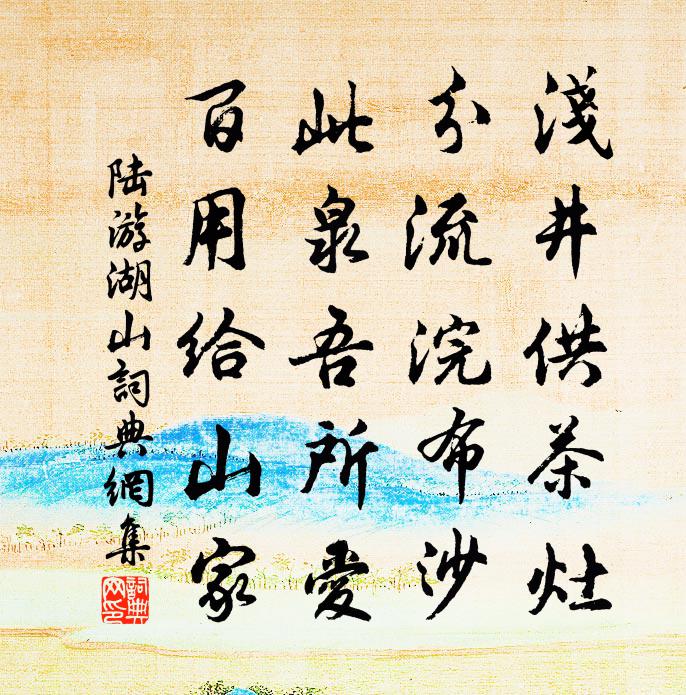 淺井供茶灶
分流浣布沙
此泉吾所愛
百用给山家
陆游湖山詞典網集
詞典网印